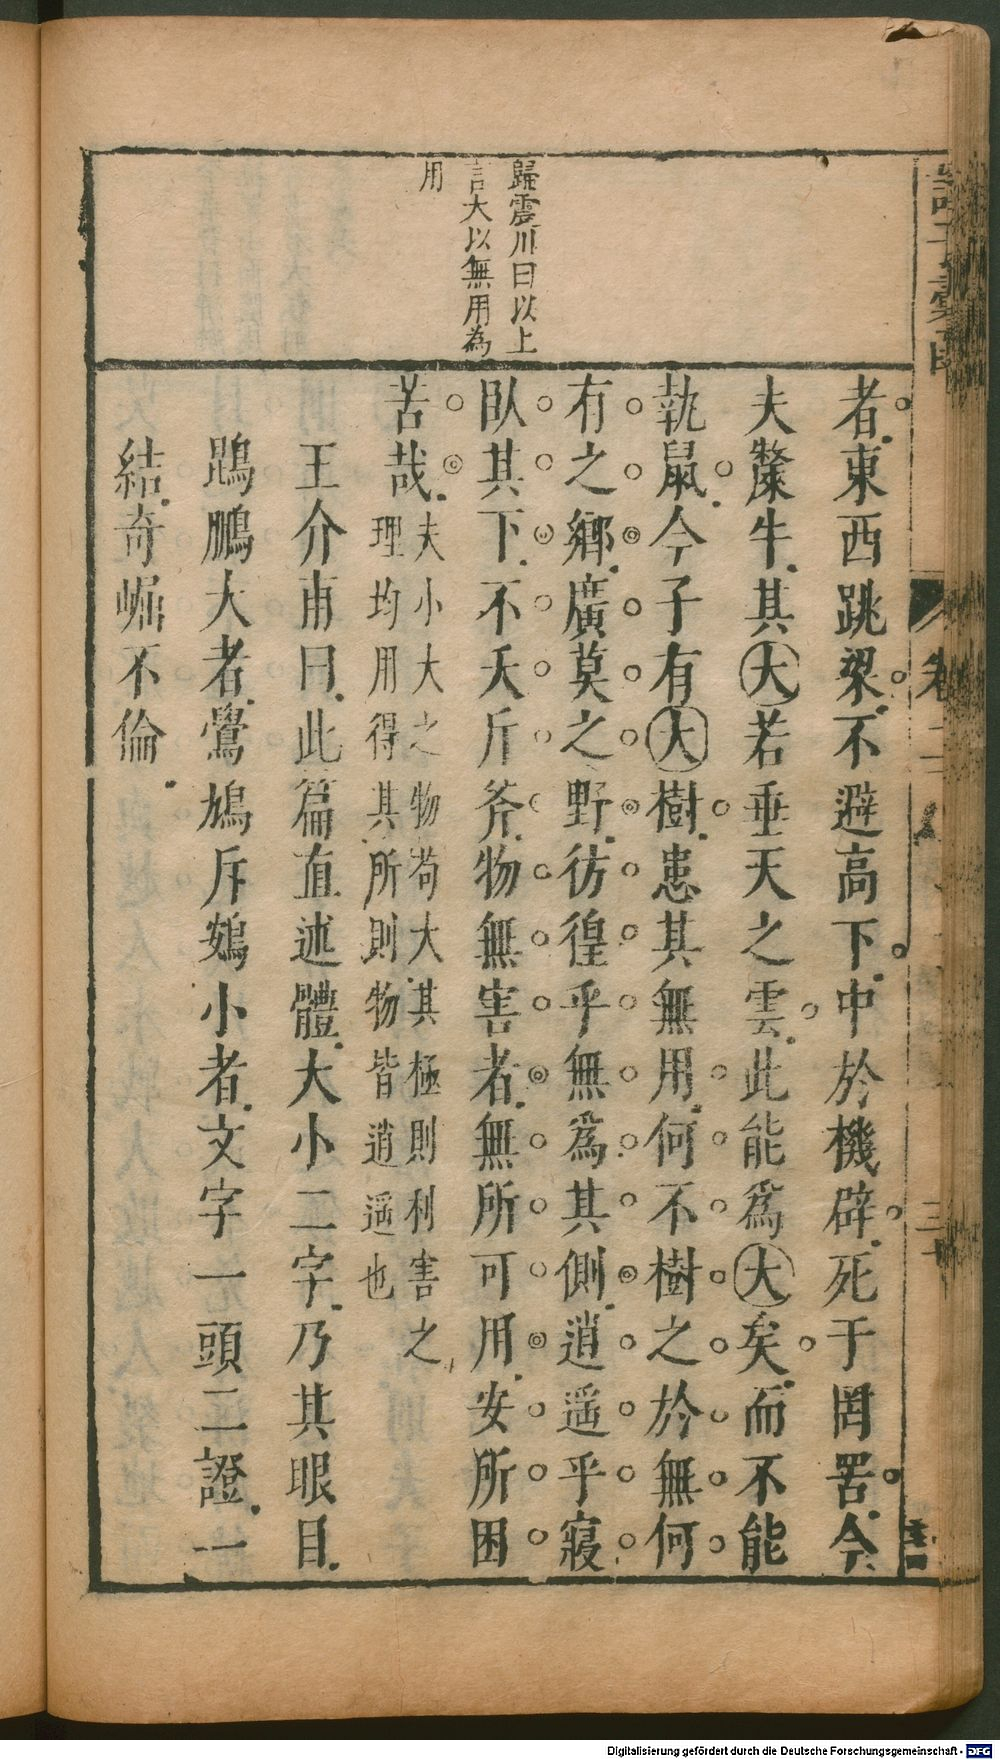 歸震川曰以上
言大以無用為
用
者東西跳梁不避高下中於機辟死于罔罟今
夫斄牛其大若垂天之雲此能爲大矣而不能
執鼠今子有大樹患其無用何不樹之於無何
有之鄉廣莫之野彷徨乎無爲其側逍遥乎寢
臥其下不夭斤斧物無害者無所可用安所困
苦哉
夫小大之物苟大其極則利害之
理均用得其所則物皆逍遥也
王介甫曰此篇直述體大小二字乃其眼目
鵾鵬大者鷽鳩斥鷃小者文字一頭二證一
結奇崛不倫
卷二
三十
Digitalisierung gefördert durch die Deutsche Forschungsgemeinschaft - DFG